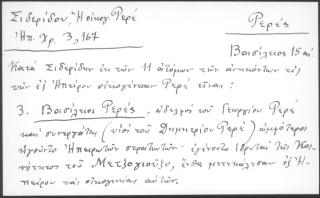 Σιδερίδου, Ἡ οἰκογ. Ρερέ
Ἠπ. Χρ. 3, 167
Ρερές
Βασίλειος 15 αἰ
Κατά Σιδερίδην ἐκ τῶν 11 ἀτόμων τῶν ἀνηκόντων εἰς
τήν ἐξ Ἠπείρου οἰκογένειαν Ρερέ εἶναι :
3. Βασίλειος Ρερές, ἀδελφός τοῦ Γεωργίου Ρερέ
καί συνεργάτης (υἱοί τοῦ Δημητρίου Ρερέ) ἀμφότεροι
ἡγοῦντο Ἠπειρωτῶν στρατιωτῶν· ἐγένοντο ἱδρυταί τῆς Κοι-
νότητος τοῦ Μετζοϊούζο, ἔνθα μετεκάλεσαν ἐξ Ἠ-
πείρου τάς οἰκογενείας αὐτῶν.